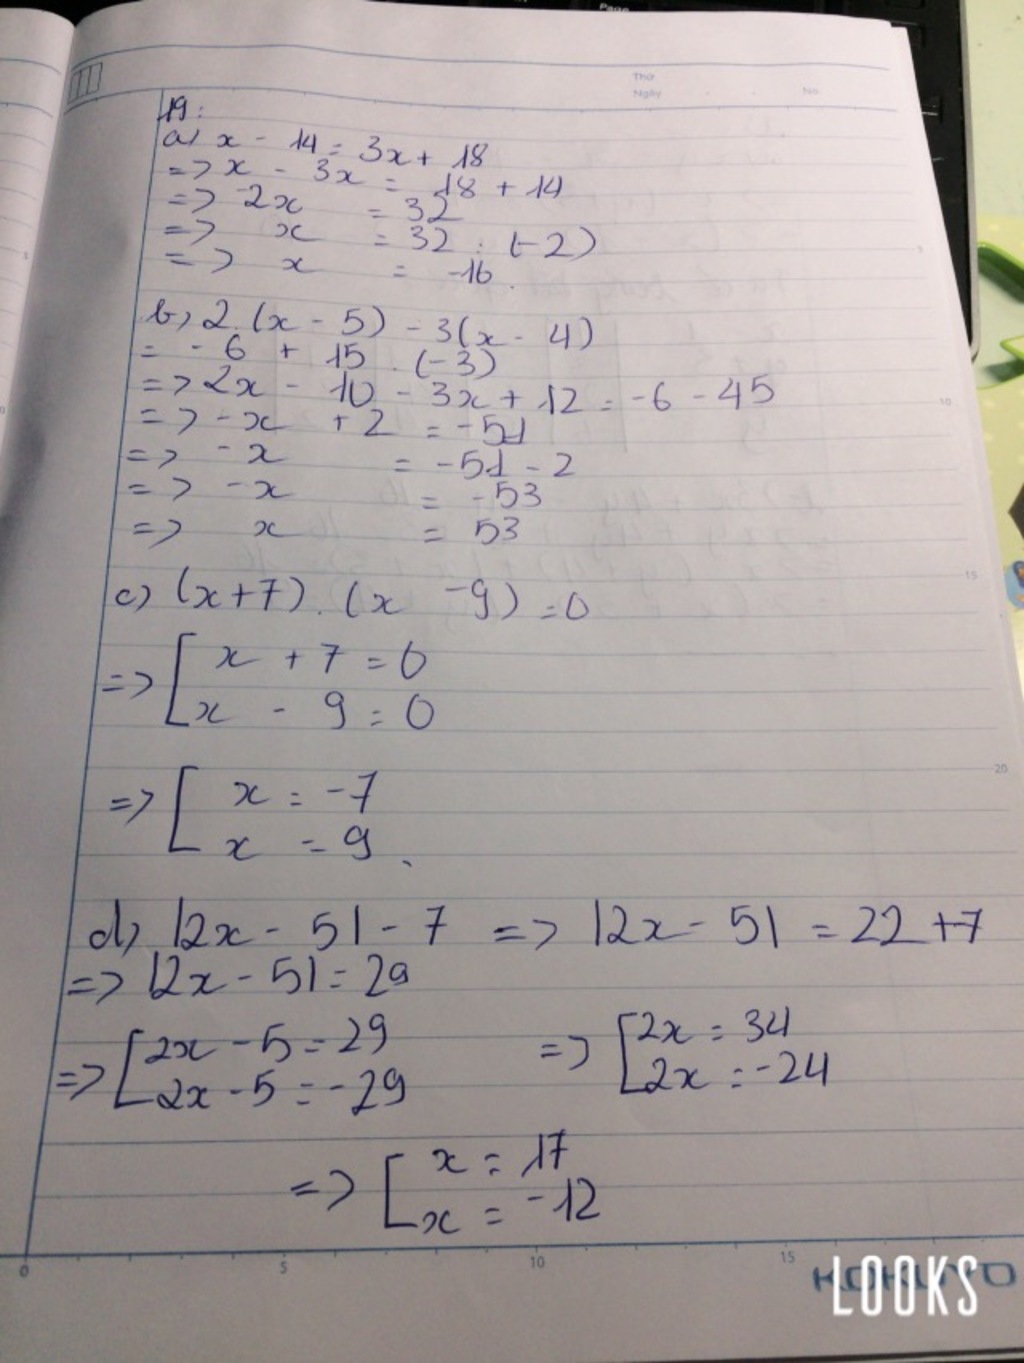 Page
Thứ
Ngày
No
19:
a) x - 14 = 3x + 18
=> x - 3x = 18 + 14
=> -2x = 32
=> x = 32 : (-2)
=> x = -16.
b) 2.(x - 5) - 3(x - 4)
= -6 + 15 . (-3)
=> 2x - 10 - 3x + 12 = -6 - 45
=> -x + 2 = -51
=> -x = -51 - 2
=> -x = -53
=> x = 53
c) (x+7).(x -9) = 0
=> [ x + 7 = 0
x - 9 = 0
=> [ x = -7
x = 9.
d) |2x - 5| - 7 => |2x - 5| = 22 + 7
=> |2x - 5| = 29
=> [ 2x - 5 = 29 => [ 2x = 34
2x - 5 = -29 2x = -24
=> [ x = 17
x = -12
5
10
15
20
0 5 10 15
KOKUYO
LOOKS